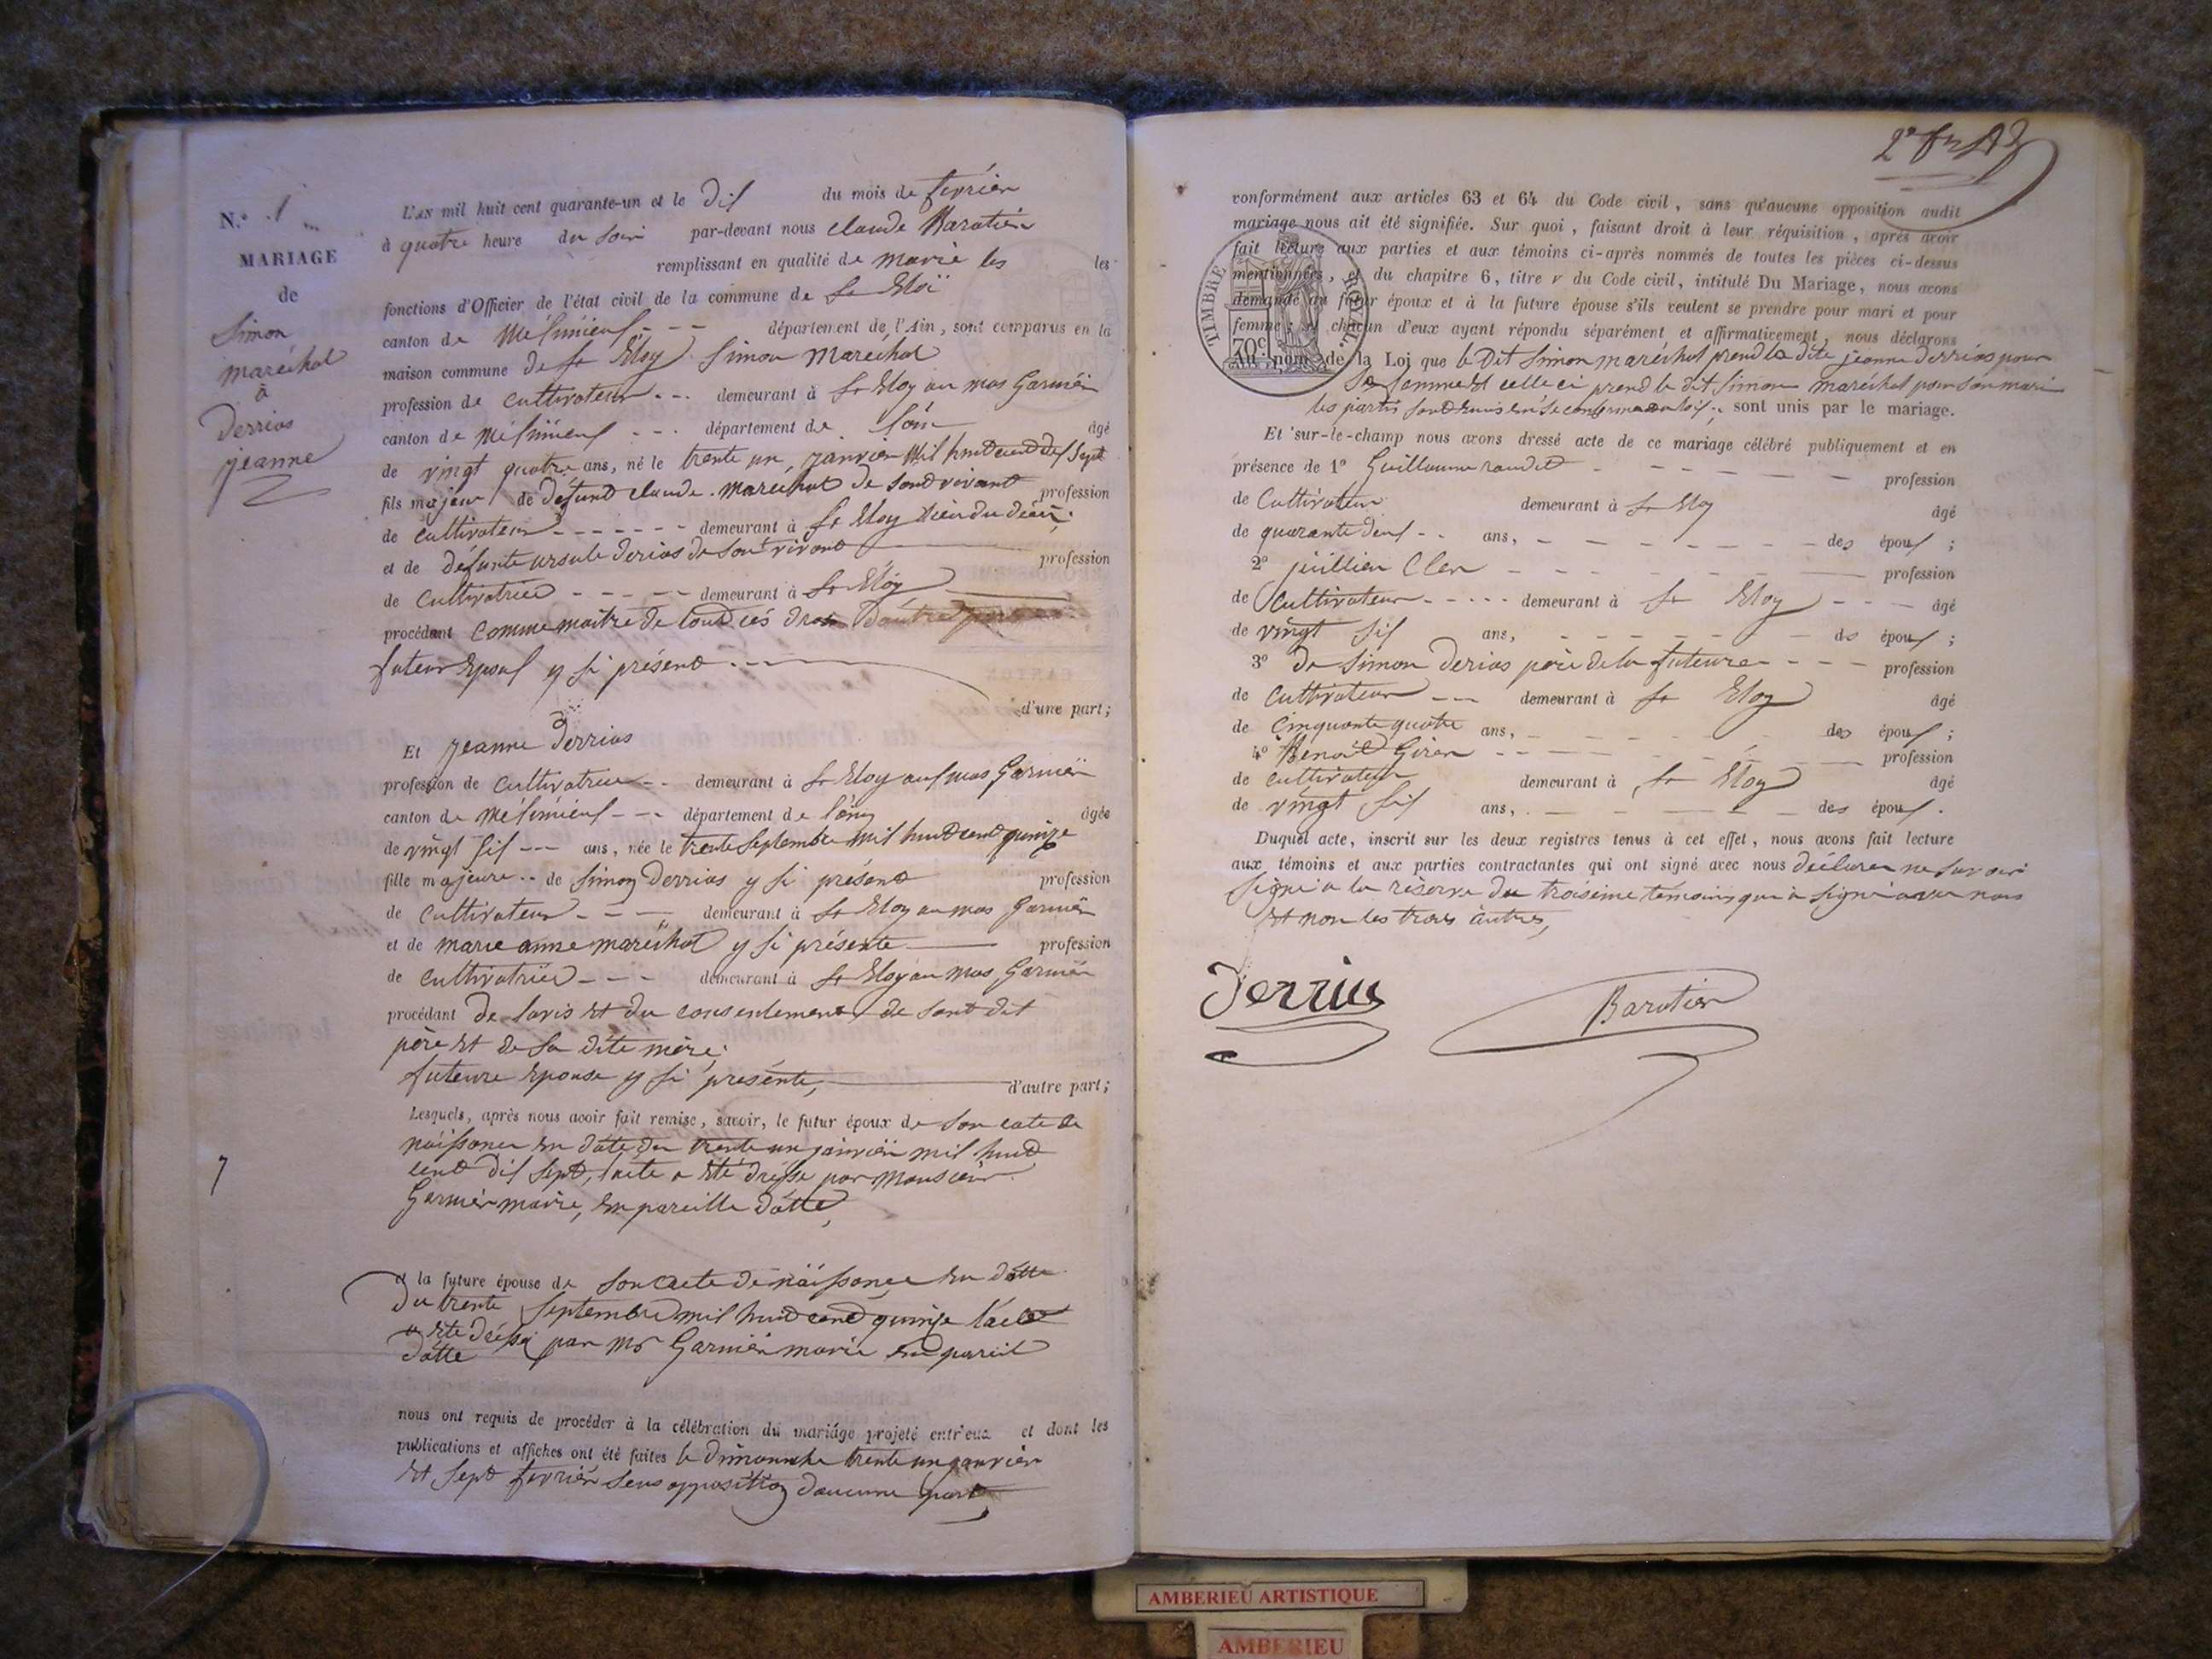 N.° 1
MARIAGE
de
Simon
maréchal
à
Derrias
jeanne
L'AN mil huit cent quarante-un et le Dix du mois de fevrier
à quatre heure du soir par-devant nous claude Baratier
remplissant en qualité de maire les les
fonctions d'Officier de l'état civil de la commune de St Eloi
canton de Méximieux - - - département de l'Ain, sont comparus en la
maison commune de St Eloy Simon maréchal
profession de cultivateur - - - demeurant à St Eloy au mas Garnier
canton de méximieux - - - département de lain âgé
de vingt quatre ans, né le trente un janvier mil huit cent dix sept
fils majeur de défunt claude maréchal de sont vivant profession
de cultivateur - - - - - - demeurant à St Eloy
et de défunte ursule derias de sont vivant profession
de cultivatrice - - - - - demeurant à St Eloy
procédant comme maitre de tout ces droit
futeur Epoux y si présent
d'une part;
Et jeanne Derrias
profession de cultivatrice - - demeurant à St Eloy aux mas Garnier
canton de méximieux - - - département de l'ain âgée
de vingt six - - - ans, née le trente septembre mil huit cent quinze
fille majeure - - de Simon Derrias y si présent profession
de cultivateur - - - demeurant à St Eloy au mas Garnier
et de marie anne maréchal y si présente profession
de cultivatrice - - - demeurant à St Eloy au mas Garnier
procédant de lavis et du consentement de sont dit
père et de sa dite mère;
futeure Epouse y si présente, d'autre part;
Lesquels, après nous avoir fait remise, savoir, le futur époux de son acte de
naissance en date du trente un janvier mil huit
cent dix sept, lacte a été dréssé par monsieur
Garnier maire, en pareille datte,
7
et la future épouse de son acte de naissance en datte
du trente septembre mil huit cent quinze l'acte
a été dréssé par mr Garnier maire en pareil
datte
nous ont requis de procéder à la célébration du mariage projeté entr'eux et dont les
publications et affiches ont été faites le dimanche trente un janvier
et sept fevrier sens opposition d'aucune part
conformément aux articles 63 et 64 du Code civil, sans qu'aucune opposition audit
mariage nous ait été signifiée. Sur quoi, faisant droit à leur réquisition, après avoir
fait lecture aux parties et aux témoins ci-après nommés de toutes les pièces ci-dessus
mentionnées, et du chapitre 6, titre v du Code civil, intitulé Du Mariage, nous avons
demandé au futur époux et à la future épouse s'ils veulent se prendre pour mari et pour
femme; et chacun d'eux ayant répondu séparément et affirmativement, nous déclarons
au nom de la Loi que le dit Simon maréchal prend la dite jeanne derrias pour
sa femme et celle ci prend le dit Simon maréchal pour son mari
sont unis par le mariage.
TIMBRE ROYAL.
70c
Et sur-le-champ nous avons dressé acte de ce mariage célébré publiquement et en
présence de 1° Guillaume raudet - - - - - profession
de Cultivateur demeurant à St Eloy âgé
de quarante deux - - ans, - - - - - - - des époux;
2° juillien Cler - - - - - profession
de Cultivateur - - - - - demeurant à St Eloy - - - âgé
de vingt six ans, - - - - - - - des époux;
3° de Simon derias père de la futeure - - - - profession
de cultivateur - - - demeurant à St Eloy âgé
de cinquante quatre ans, - - - - - des époux;
4° Benoit Giren - - - - profession
de cultivateur demeurant à St Eloy âgé
de vingt six ans, - - - - des époux.
Duquel acte, inscrit sur les deux registres tenus à cet effet, nous avons fait lecture
aux témoins et aux parties contractantes qui ont signé avec nous déclarer ne savoir
signé a la réserve du troisième temoins qui à signé avec nous
et non les trois autres,
Derrias Baratier
AMBERIEU ARTISTIQUE
AMBERIEU